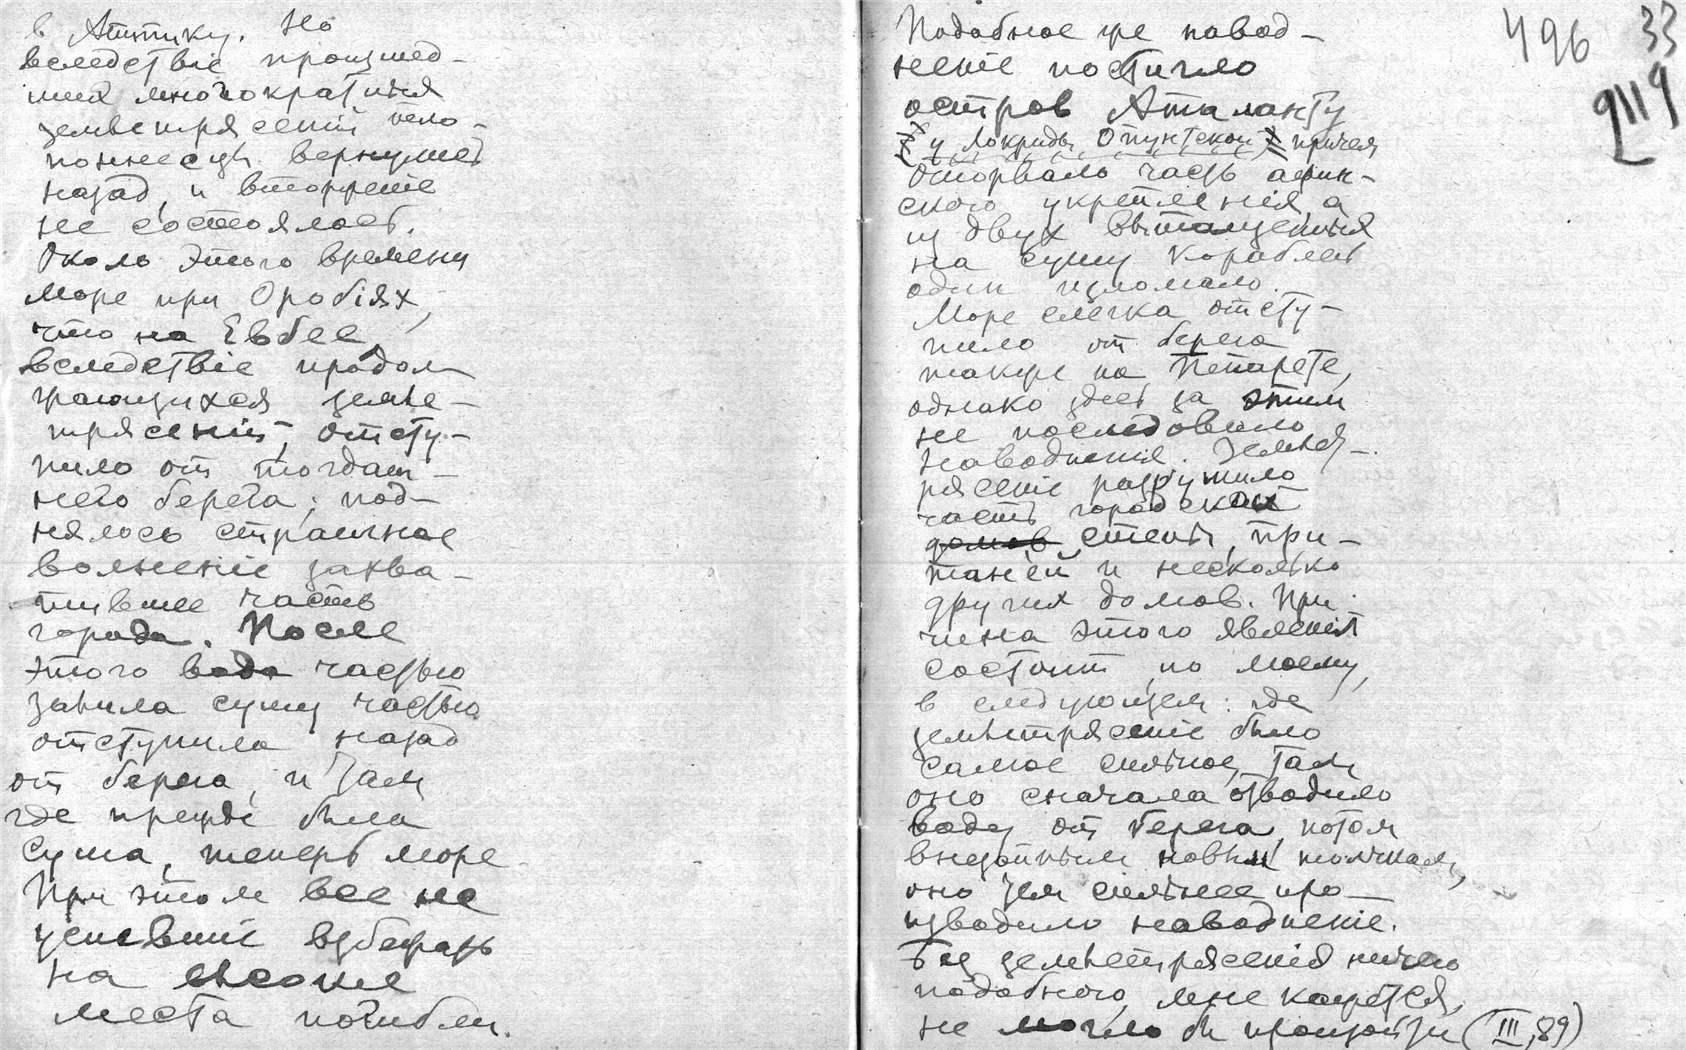 в Аттику. Но
вследствіе происшед-
ших многократных
землетрясеній пело-
поннесцы вернулись
назад, и вторженіе
не состоялось.
Около этого времени
море при Оробіях,
что на Евбее,
вследствіе продол
жающихся земле-
трясеній, отсту-
пило от тогдаш-
него берега; под-
нялось страшное
волненіе захва-
тившее часть
города. После
этого вода частью
залила сушу частью
отступила назад
от берега, и там
где прежде была
суша, теперь море
При этом все не
успевшіе взбежать
на высокие
места погибли.
Подобное же навод-
неніе постигло
остров Аталанту
(у Локриды Опунтской) причем
оторвало часть афин-
ского укрепленія, а
из двух вытащенных
на сушу кораблей
один изломало.
Море слегка отсту-
пило от берега
также на Пепарете,
однако здесь за этим
не последовало
наводненія. Землет-
рясеніе разрушило
часть городской
домов стены, при-
таней и несколько
других домов. При
чина этого явленія
состоит, по моему,
в следующем: где
землетрясеніе было
самое сильное, там
оно сначала отводило
воду от берега, потом
внезапным новым толчком,
оно тем сильнее про-
изводило наводненіе.
Без землетрясенія ничего
подобного, мне кажется,
не могло бы произойти (III, 89)
496 33